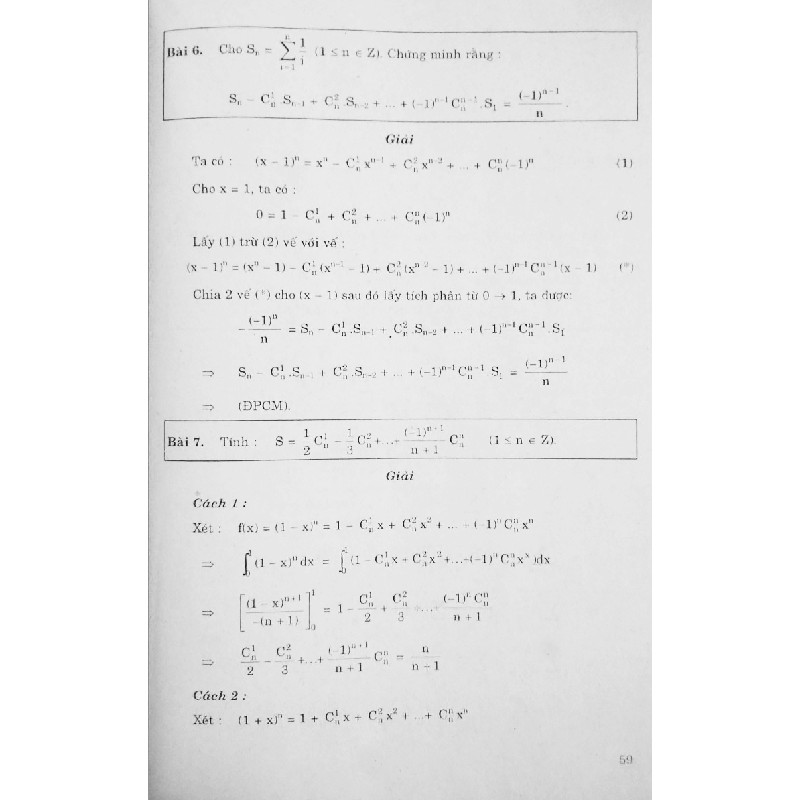 Bài 6. Cho Sₙ = ∑ᵢ₌₁ⁿ 1/i (1 ≤ n ∈ Z). Chứng minh rằng :
Sₙ - C¹ₙ .Sₙ₋₁ + C²ₙ .Sₙ₋₂ + ... + (-1)ⁿ⁻¹ Cₙⁿ⁻¹ .S₁ = (-1)ⁿ⁻¹/n .
Giải
Ta có : (x - 1)ⁿ = xⁿ - C¹ₙ xⁿ⁻¹ + C²ₙ xⁿ⁻² + ... + Cⁿₙ (-1)ⁿ (1)
Cho x = 1, ta có :
0 = 1 - C¹ₙ + C²ₙ + ... + Cⁿₙ (-1)ⁿ (2)
Lấy (1) trừ (2) vế với vế :
(x - 1)ⁿ = (xⁿ - 1) - C¹ₙ (xⁿ⁻¹ - 1) + C²ₙ (xⁿ⁻² - 1) + ... + (-1)ⁿ⁻¹ Cₙⁿ⁻¹ (x - 1) (*)
Chia 2 vế (*) cho (x - 1) sau đó lấy tích phân từ 0 → 1, ta được:
-(-1)ⁿ/n = Sₙ - C¹ₙ .Sₙ₋₁ + C²ₙ .Sₙ₋₂ + ... + (-1)ⁿ⁻¹ Cₙⁿ⁻¹ .S₁
⇒ Sₙ - C¹ₙ .Sₙ₋₁ + C²ₙ .Sₙ₋₂ + ... + (-1)ⁿ⁻¹ Cₙⁿ⁻¹ S₁ = (-1)ⁿ⁻¹/n
⇒ (ĐPCM).
Bài 7. Tính : S = 1/2 C¹ₙ - 1/3 C²ₙ + ... + (-1)ⁿ⁺¹/(n + 1) Cⁿₙ (1 ≤ n ∈ Z).
Giải
Cách 1 :
Xét : f(x) = (1 - x)ⁿ = 1 - C¹ₙ x + C²ₙ x² + ... + (-1)ⁿ Cⁿₙ xⁿ
⇒ ∫₀¹ (1 - x)ⁿ dx = ∫₀¹ (1 - C¹ₙ x + C²ₙ x² + ... + (-1)ⁿ Cⁿₙ xˣ )dx
⇒ [(1 - x)ⁿ⁺¹/-(n + 1)]₀¹ = 1 - C¹ₙ/2 + C²ₙ/3 + ... + (-1)ⁿ Cⁿₙ/(n + 1)
⇒ C¹ₙ/2 - C²ₙ/3 + ... + (-1)ⁿ⁺¹/(n + 1) Cⁿₙ = n/(n + 1)
Cách 2 :
Xét : (1 + x)ⁿ = 1 + C¹ₙ x + C²ₙ x² + ... + Cⁿₙ xⁿ
59